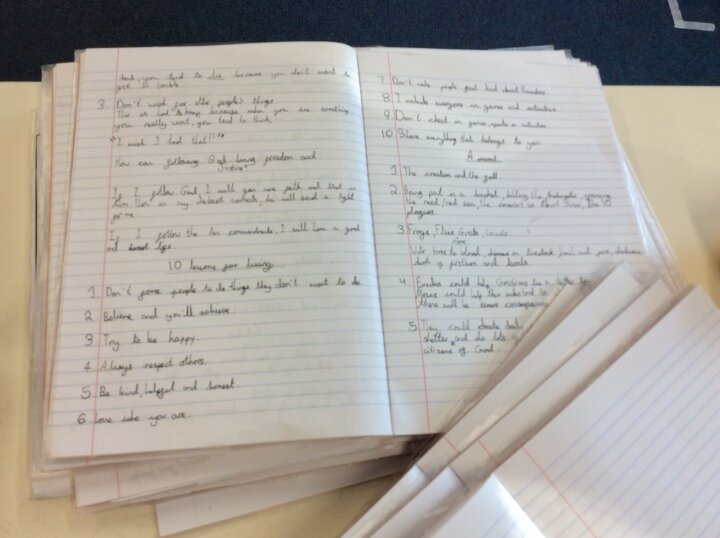 but, you tend to lie because you don't want to
get in trouble
3. Don't wish for other people's things
This is hard to keep because when you see something
you really want, you tend to think,
"I wish I had that!!"
How can following God bring freedom and
justice?
If I follow God, I will gain one path and that is
Then in my darkest corners, he will send a light
for me.
If I follow the ten commandments, I will have a good
and honest life.
10 lessons for living
1 Don't force people to do things they don't want to do.
2 Believe and you'll achieve.
3 Try to be happy.
4 Always respect others.
5 Be kind, helpful and honest.
6 Love who you are.
7. Don't make people feel bad about themselves
8 I include everyone in games and activities
9 Don't cheat in games, sports or activities
10 Share everything that belongs to you
1 The creation and the fall
2 Being put in a basket, killing the crossing
the reed/red sea, the on Mount Sinai, The 10
plagues.
3 Frogs, Flies, Gnats, Locusts
to blood, diseases on livestock, hail and fire, darkness
death of firstborn
4. could help Christians
Jesus could help them understand
there will be severe consequences
5 They could donate
shelter, and do lots
citizens of God.